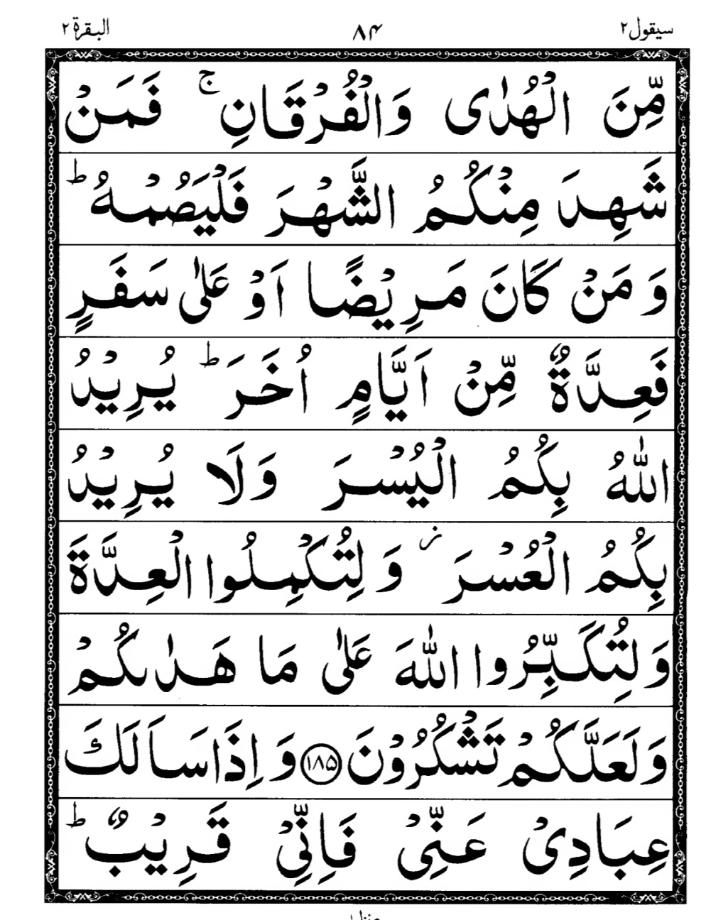 سیقول ۲ ۸۴ البقرة ۲
مِّنَ الْهُدٰی وَالْفُرْقَانِ ۚ فَمَنْ
شَهِدَ مِنْكُمُ الشَّهْرَ فَلْیَصُمْهُ ؕ
وَ مَنْ كَانَ مَرِیْضًا اَوْ عَلٰی سَفَرٍ
فَعِدَّةٌ مِّنْ اَیَّامٍ اُخَرَ ؕ یُرِیْدُ
اللّٰهُ بِكُمُ الْیُسْرَ وَلَا یُرِیْدُ
بِكُمُ الْعُسْرَ ؗ وَ لِتُكْمِلُوا الْعِدَّةَ
وَ لِتُكَبِّرُوا اللّٰهَ عَلٰی مَا هَدٰىكُمْ
وَ لَعَلَّكُمْ تَشْكُرُوْنَ ۱۸۵ وَ اِذَا سَاَلَكَ
عِبَادِیْ عَنِّیْ فَاِنِّیْ قَرِیْبٌ ؕ